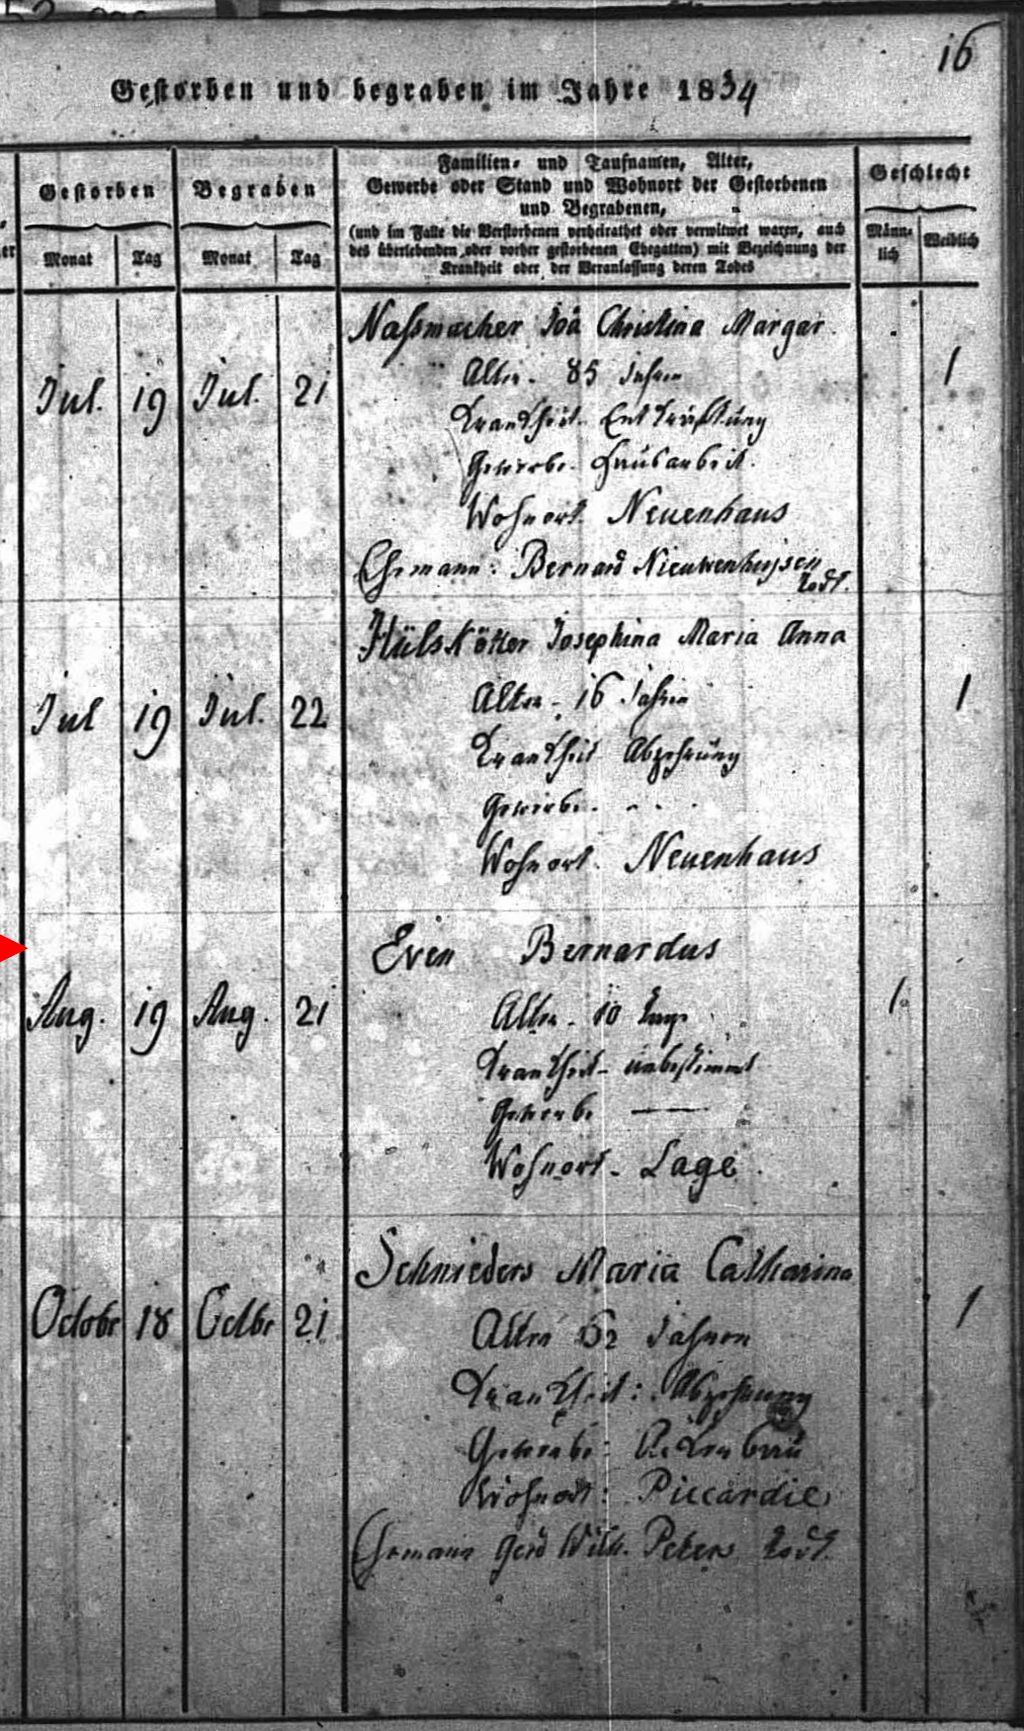 16
Gestorben und begraben im Jahre 1834
Gestorben
Begraben
Familien- und Taufnamen, Alter,
Gewerbe oder Stand und Wohnort der Gestorbenen
und Begrabenen,
(und im Falle die Verstorbenen verheirathet oder verwitwet waren, auch
des überlebenden oder vorher gestorbenen Ehegatten) mit Bezeichnung der
Krankheit oder der Veranlassung deren Todes
Geschlecht
Monat Tag Monat Tag Männ-lich Weiblich
Nassmacher Joa Christina Margar.
Alter. 85 Jahren
Jul. 19 Jul. 21 1
Krankheit. Entkräftung
Gewerbe. Hausarbeit.
Wohnort. Neuenhaus
Ehemann: Bernard Nieuwenhuysen
todt.
Hülskötter Josephina Maria Anna
Alter. 16 Jahren
Jul 19 Jul. 22 1
Krankheit Abzehrung
Gewerbe. - . .
Wohnort. Neuenhaus
Even Bernardus
Alter. 10 Tage
Aug. 19 Aug. 21 1.
Krankheit- unbestimmt
Gewerbe —
Wohnort- Lage.
Schnieders Maria Catharina
Octobr 18 Octbr 21 1
Alter 62 Jahren
Krankheit: Abzehrung
Gewerbe: Ackerbau
Wohnort: Piccardie
Ehemann Gerd Wilh. Peters todt.